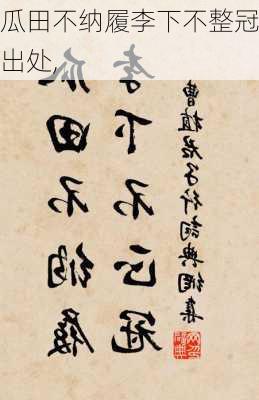 瓜田不纳履李下不整冠
出处,
瓜田不納履
李下不正冠
曹植君子行詞典網集